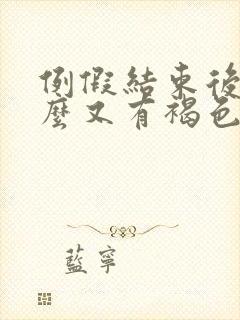 例假結束後
麼又有褐色
藍寧